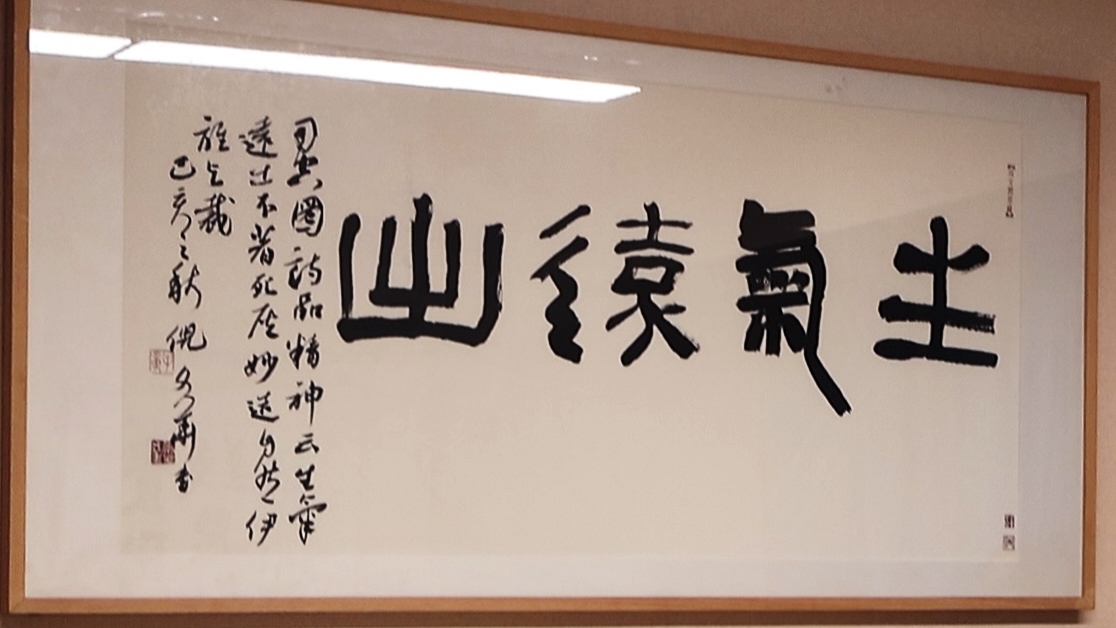 生氣遠出
司空圖詩品精神云生氣
遠出不著死灰妙造自然伊
誰与裁
己亥之秋倪文華書